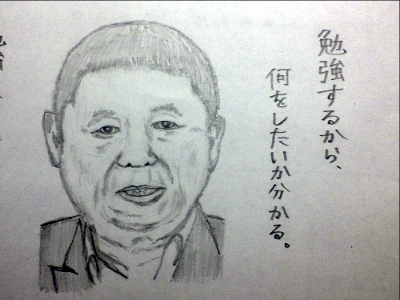 勉強するから、
何をしたいか分かる。